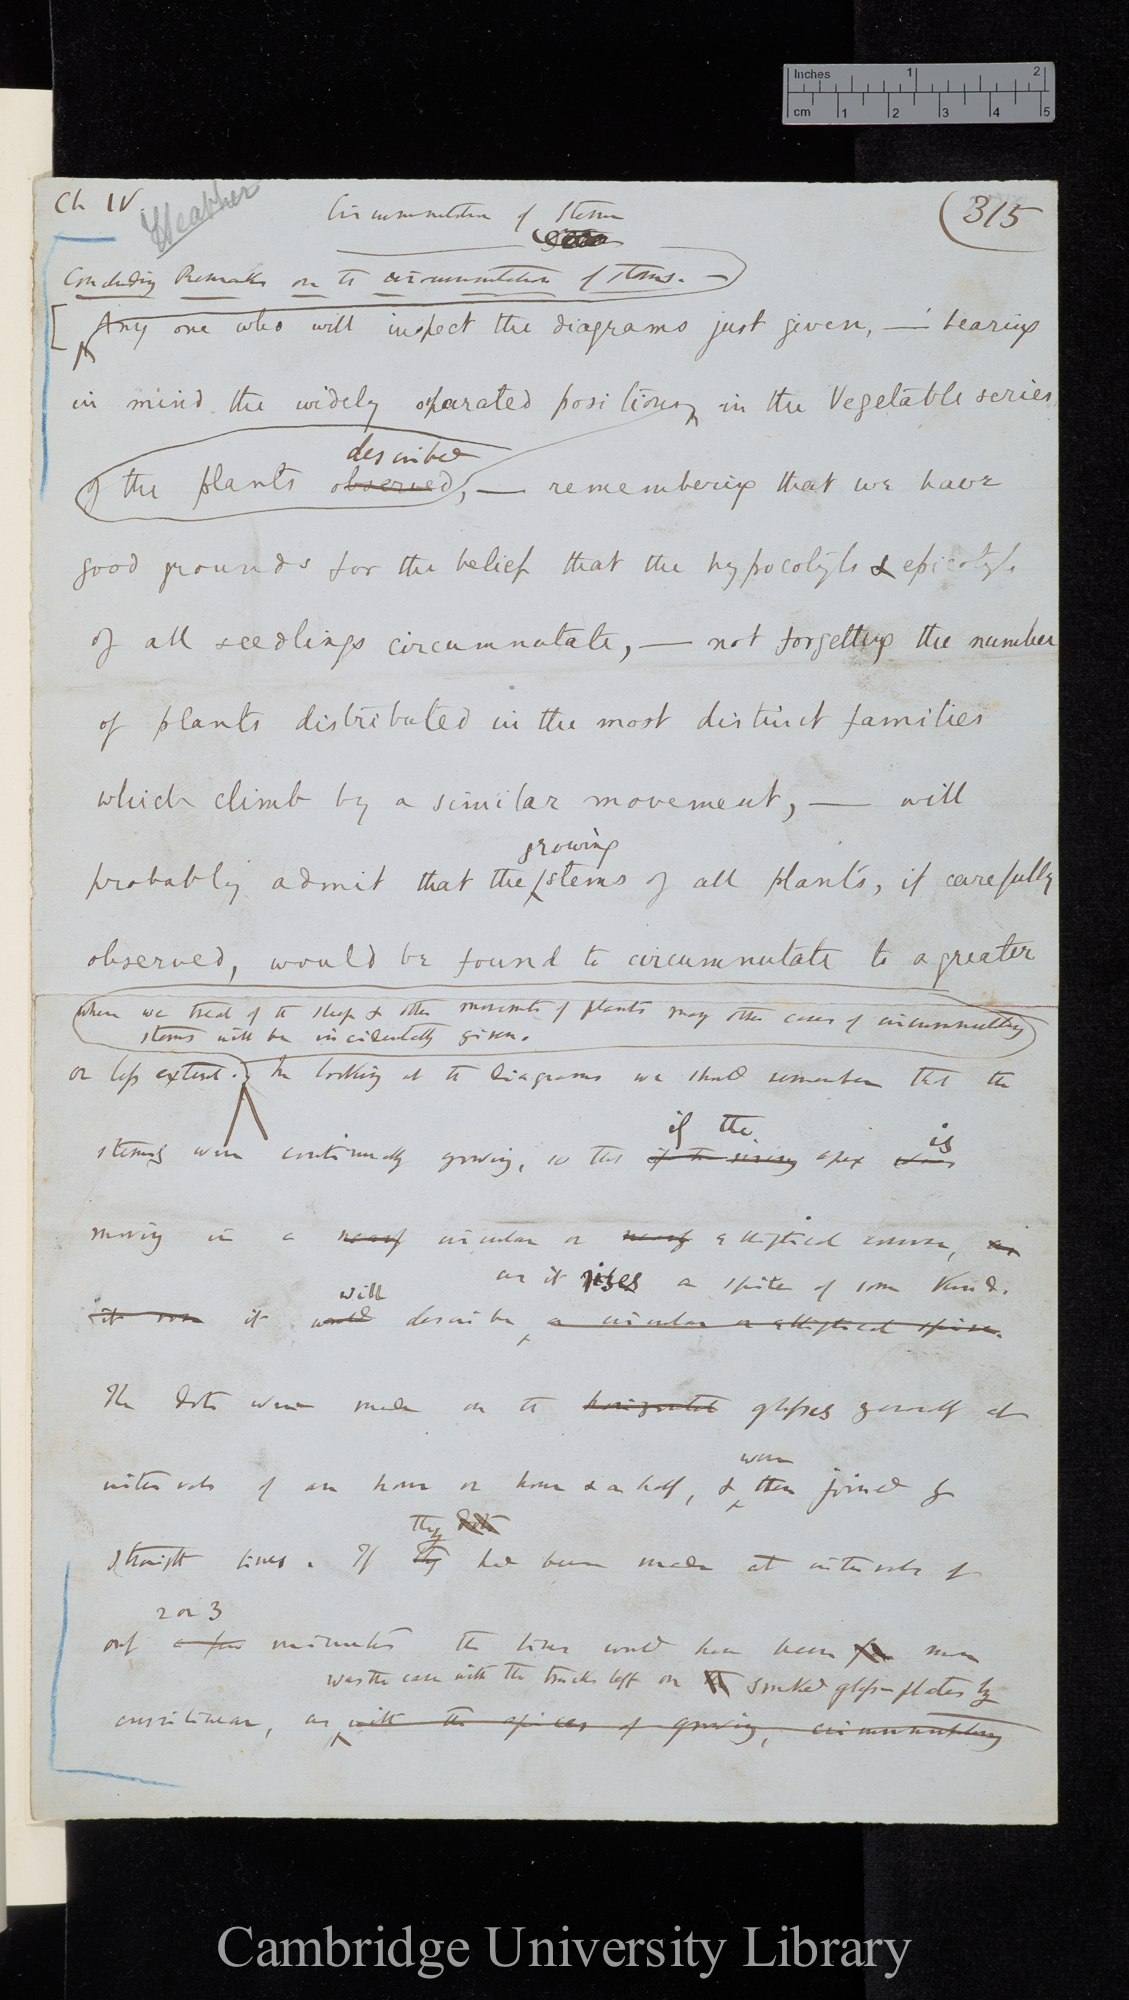 Inches 1 2
cm 1 2 3 4 5
Ch IV.
Heather
Circumnutation of Stems
315
Concluding Remarks on the circumnutation of stems. —
[Any one who will inspect the diagrams just given, — bearing
in mind the widely separated positions in the Vegetable series
described
of the plants observed, — remembering that we have
good grounds for the belief that the hypocotyls & epicotyls
of all seedlings circumnutate, — not forgetting the number
of plants distributed in the most distinct families
which climb by a similar movement, — will
growing
probably admit that the stems of all plants, if carefully
observed, would be found to circumnutate to a greater
when we treat of the sleep & other movements of plants many other cases of circumnutating
stems will be incidentally given.
or less extent. In looking at the diagrams we should remember that the
if the is
stems were continually growing, so that if the rising apex was
moving in a nearly circular or nearly elliptical course, as
as it rises a spire of some kind.
will
it rose it would describe a circular or elliptical spire.
The dots were made on the horizontal glasses generally at
were
intervals of an hour or hour & a half, & then joined by
they dots
straight lines. If they had been made at intervals of
2 or 3
only a few minutes the lines would have been far more
was the case with the tracks left on the smoked glass-plates by
curvilinear, as with the apices of growing, circumnutating
Cambridge University Library